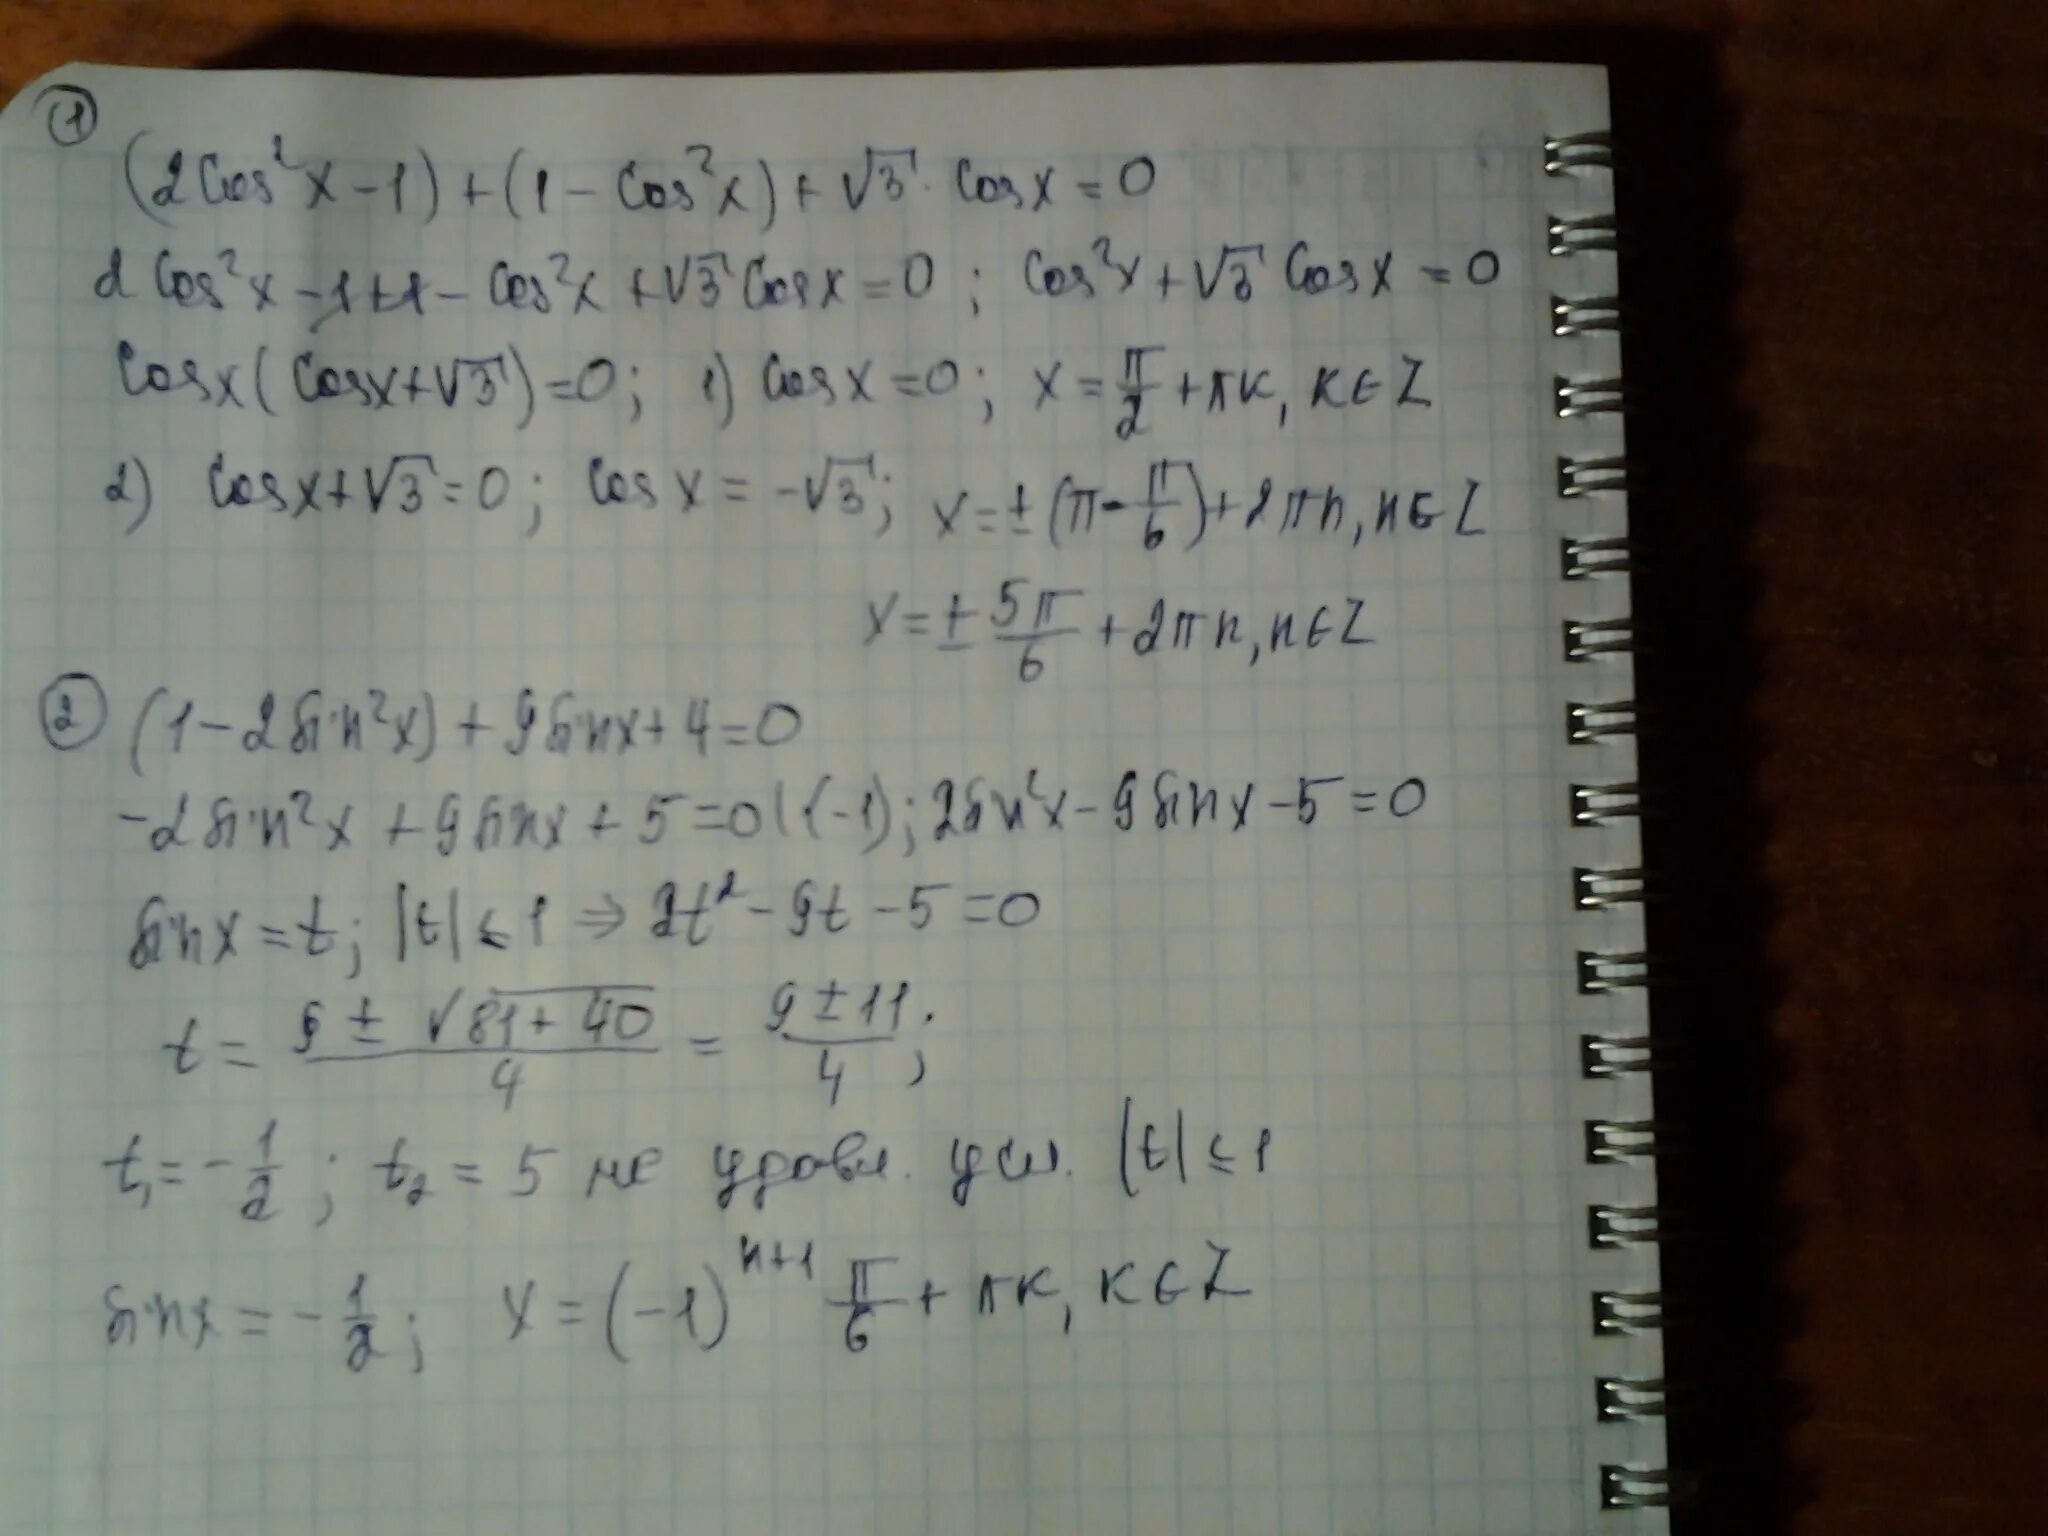 1
(2cos²x-1)+(1-cos²x)+√3·cosx=0
2cos²x-1+1-cos²x+√3cosx=0; cos²x+√3cosx=0
cosx(cosx+√3)=0; 1) cosx=0; x=π/2+πк, кϵZ
2) cosx+√3=0; cosx=-√3; x=±(π-π/6)+2πn, nϵZ
x=±5π/6+2πn, nϵZ
2
(1-2sin²x)+9sinx+4=0
-2sin²x+9sinx+5=0|·(-1); 2sin²x-9sinx-5=0
sinx=t; |t|≤1⇒2t²-9t-5=0
t=(9±√(81+40))/4=(9±11)/4;
t₁=-1/2; t₂=5 не удовл. усл. |t|≤1
sinx=-1/2; x=(-1)ⁿ⁺¹π/6+πк, кϵZ